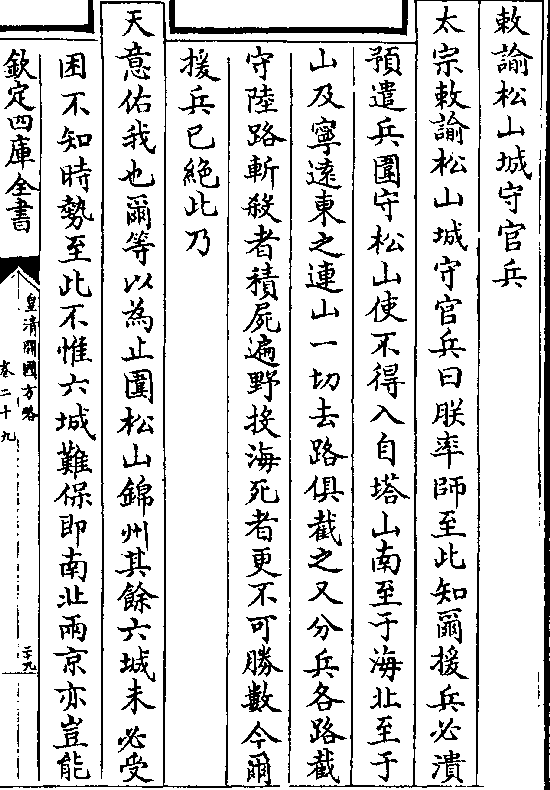 敕諭松山城守官兵
太宗敕諭松山城守官兵曰朕率師至此知爾援兵必潰
預遣兵圍守松山使不得入自塔山南至于海北至于
山及寧遠東之連山一切去路俱截之又分兵各路截
守陸路斬殺者積屍遍野投海死者更不可勝數今爾
援兵已絕此乃
天意佑我也爾等以為止圍松山錦州其餘六城未必受
困不知時勢至此不惟六城難保即南北兩京亦豈能
欽定四庫全書
皇清開國方略
卷二十九